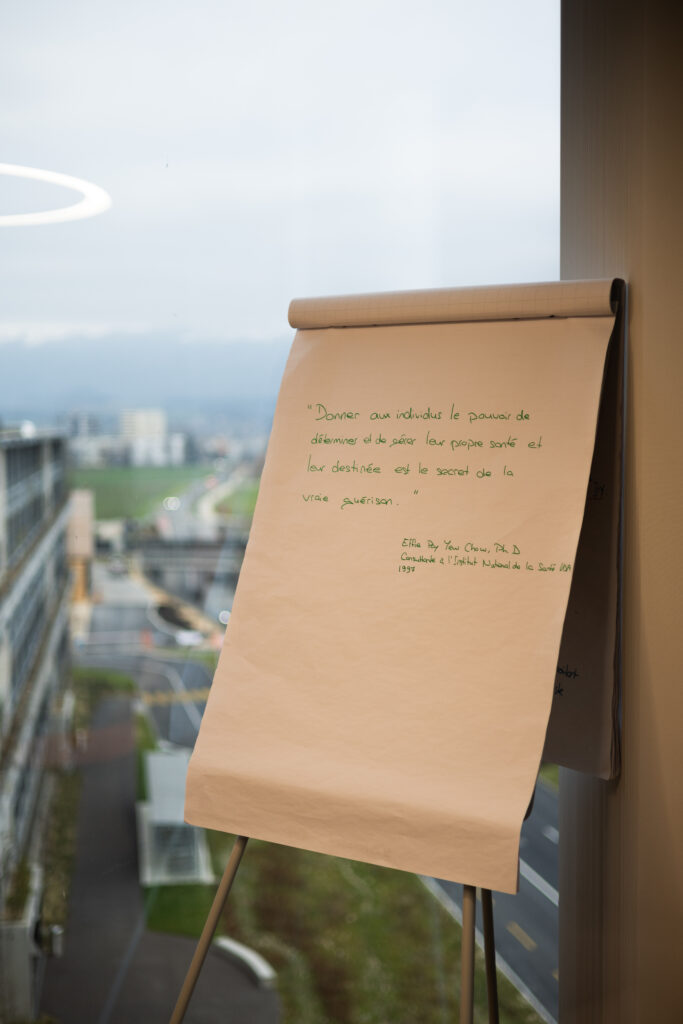 "Donner aux individus le pouvoir de
déterminer et de gérer leur propre santé et
leur destinée est le secret de la
vraie guérison."
Effie Poy Yew Chow, Ph.D
Consultante à l'Institut National de la Santé USA
1997